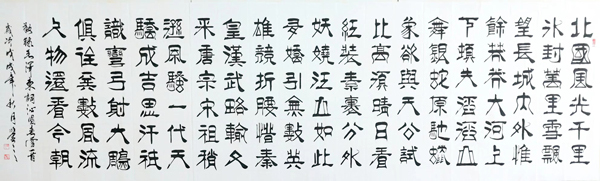 北國風光千里
冰封萬里雪飄
望長城內外惟
餘莽莽大河上
下頓失滔滔山
舞銀蛇原馳蠟
象欲與天公試
比高須晴日看
紅裝素裹分外
妖嬈江山如此
多嬌引無數英
雄競折腰惜秦
皇漢武略輸文
采唐宗宋祖稍
遜風騷一代天
驕成吉思汗祇
識彎弓射大鵰
俱往矣數風流
人物還看今朝
錄毛澤東詞沁園春雪一首
歲次戊戌年秋月